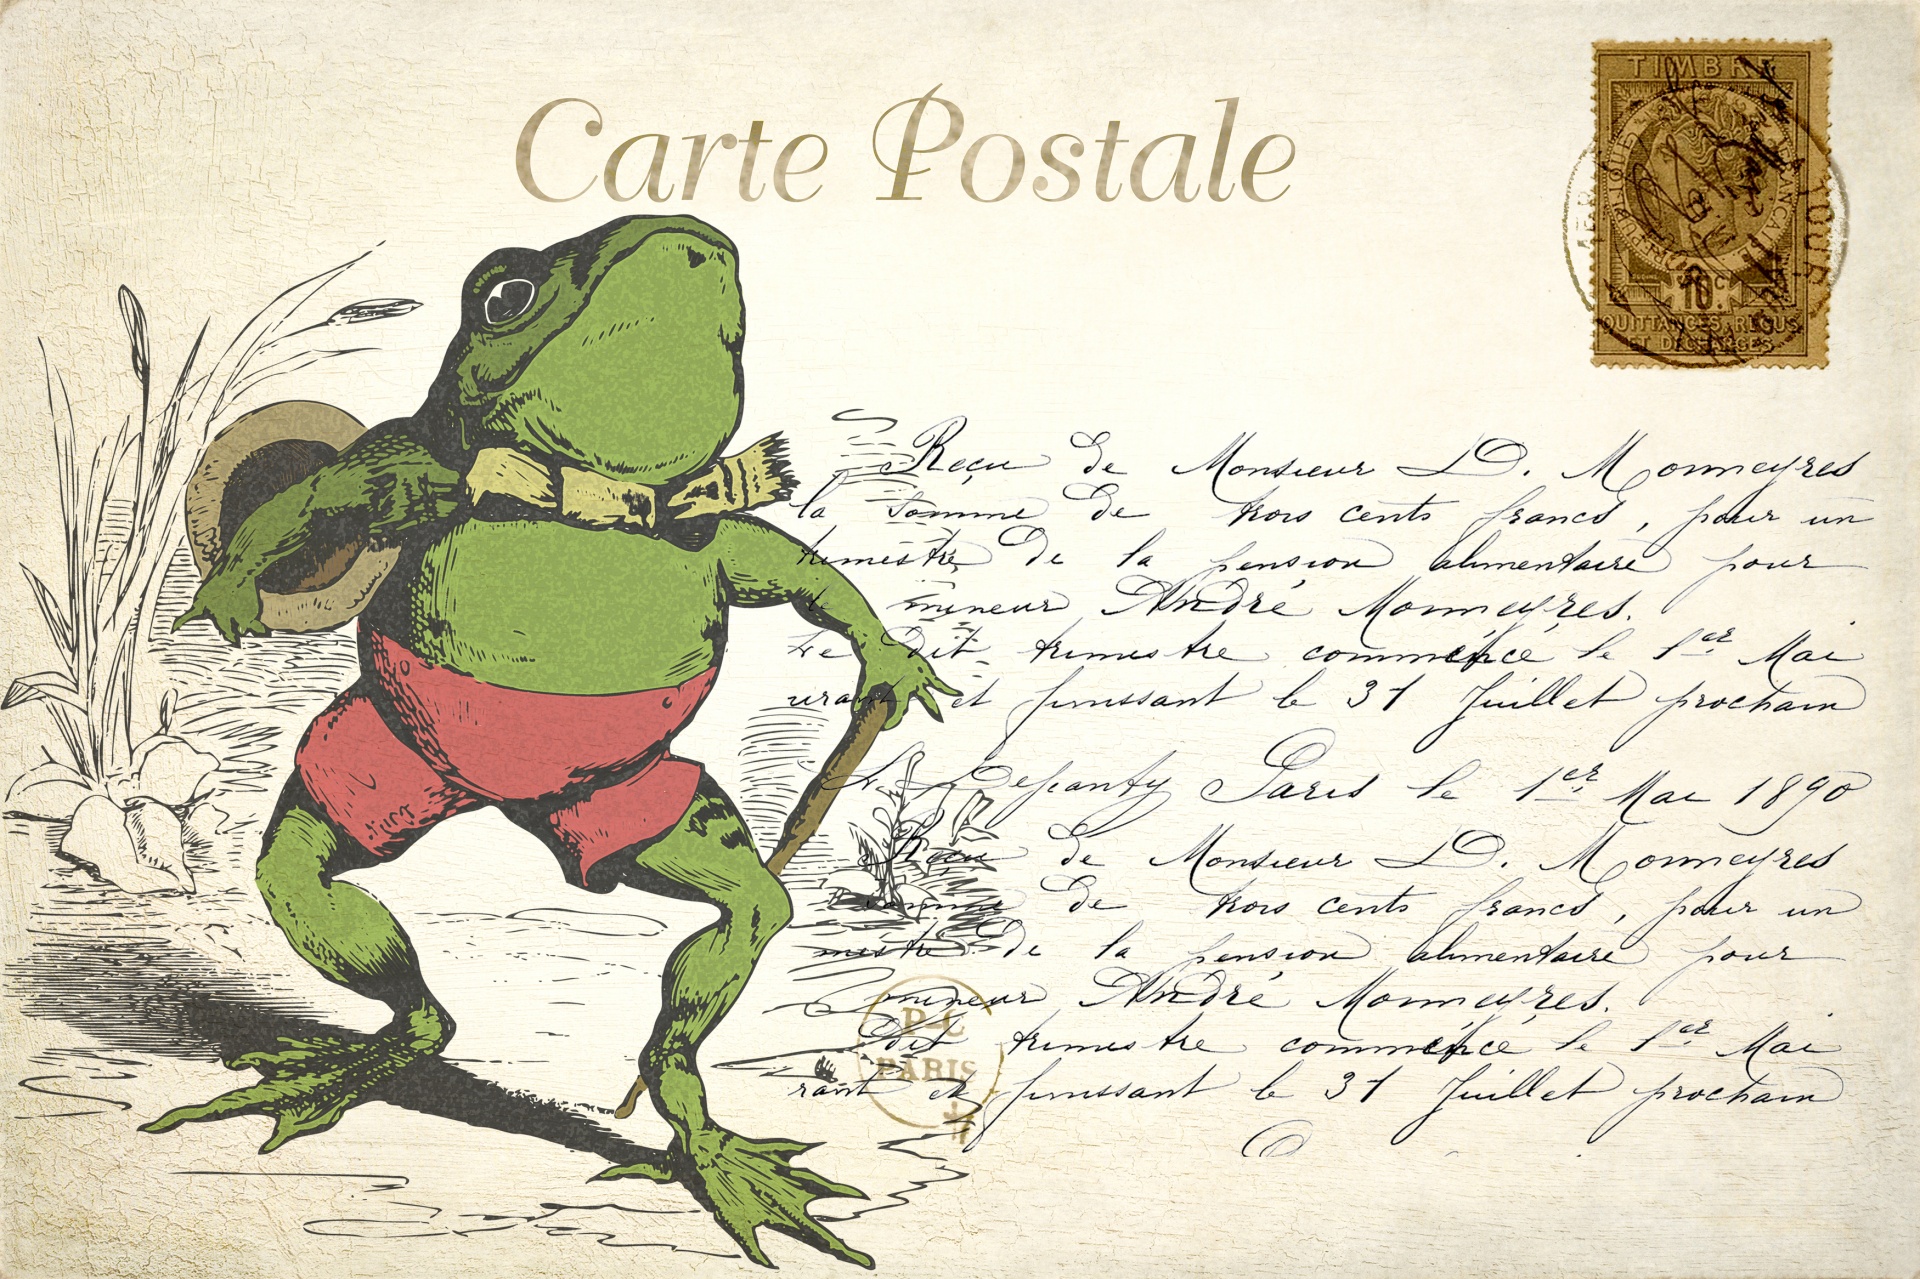 Carte Postale
TIMBRE
RÉPUBLIQUE FRANÇAISE
10 C.
QUITTANCES, REÇUS
ET DÉCHARGES
Reçu de Monsieur D. Monneyres
la somme de trois cents francs, pour un
trimestre de la pension alimentaire pour
le mineur André Monneyres.
Le dit trimestre commencé le 1er Mai
urant et finissant le 31 Juillet prochain
Paris le 1er Mai 1890
Reçu de Monsieur D. Monneyres
somme de trois cents francs, pour un
mestre de la pension alimentaire pour
mineur André Monneyres.
dit trimestre commencé le 1er Mai
rant et finissant le 31 Juillet prochain
PARIS